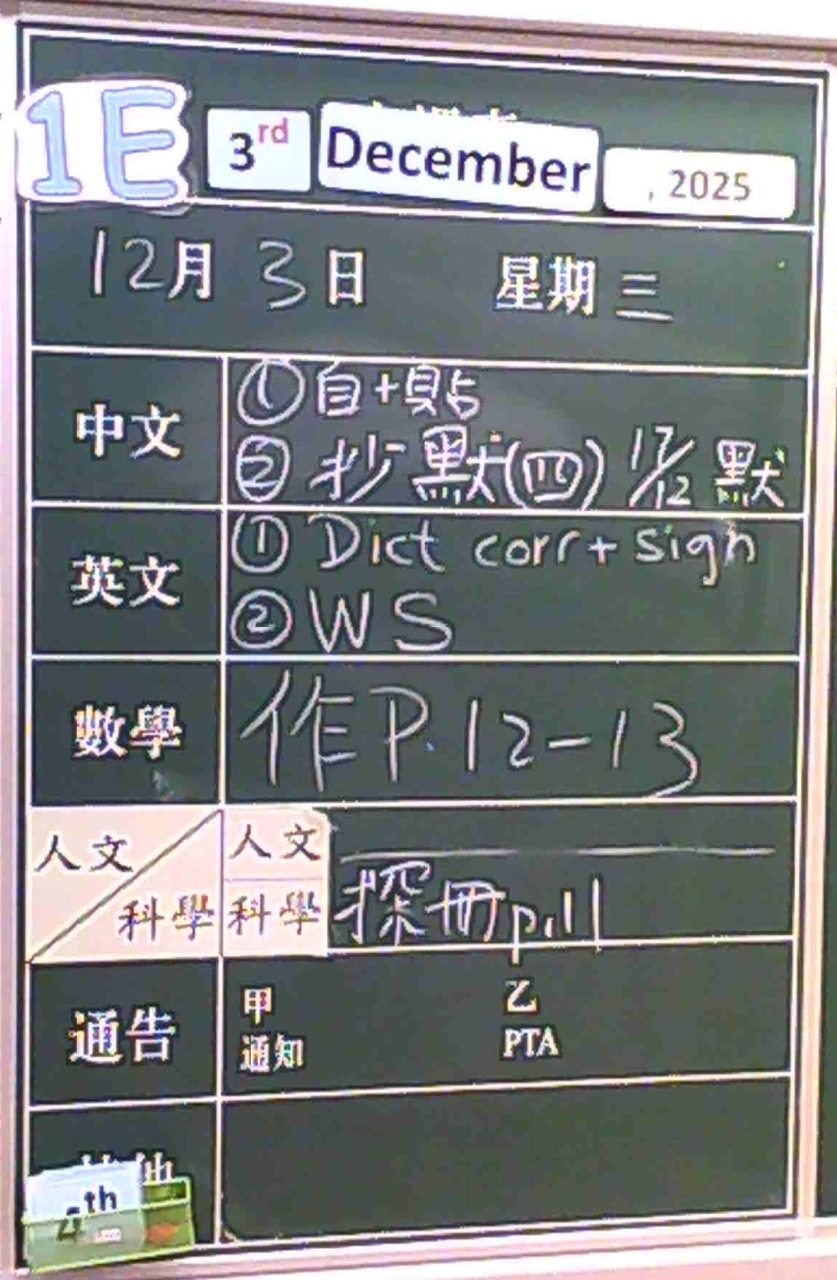 1E 3rd December , 2025
12月 3日 星期 三
中文
① 自+貼
② 抄 默(四) 17/12 默
英文
① Dict corr + sign
② WS
數學
作P.12-13
人文
科學
人文
科學 探冊p.11
通告
甲 乙
通知 PTA
其他
4th